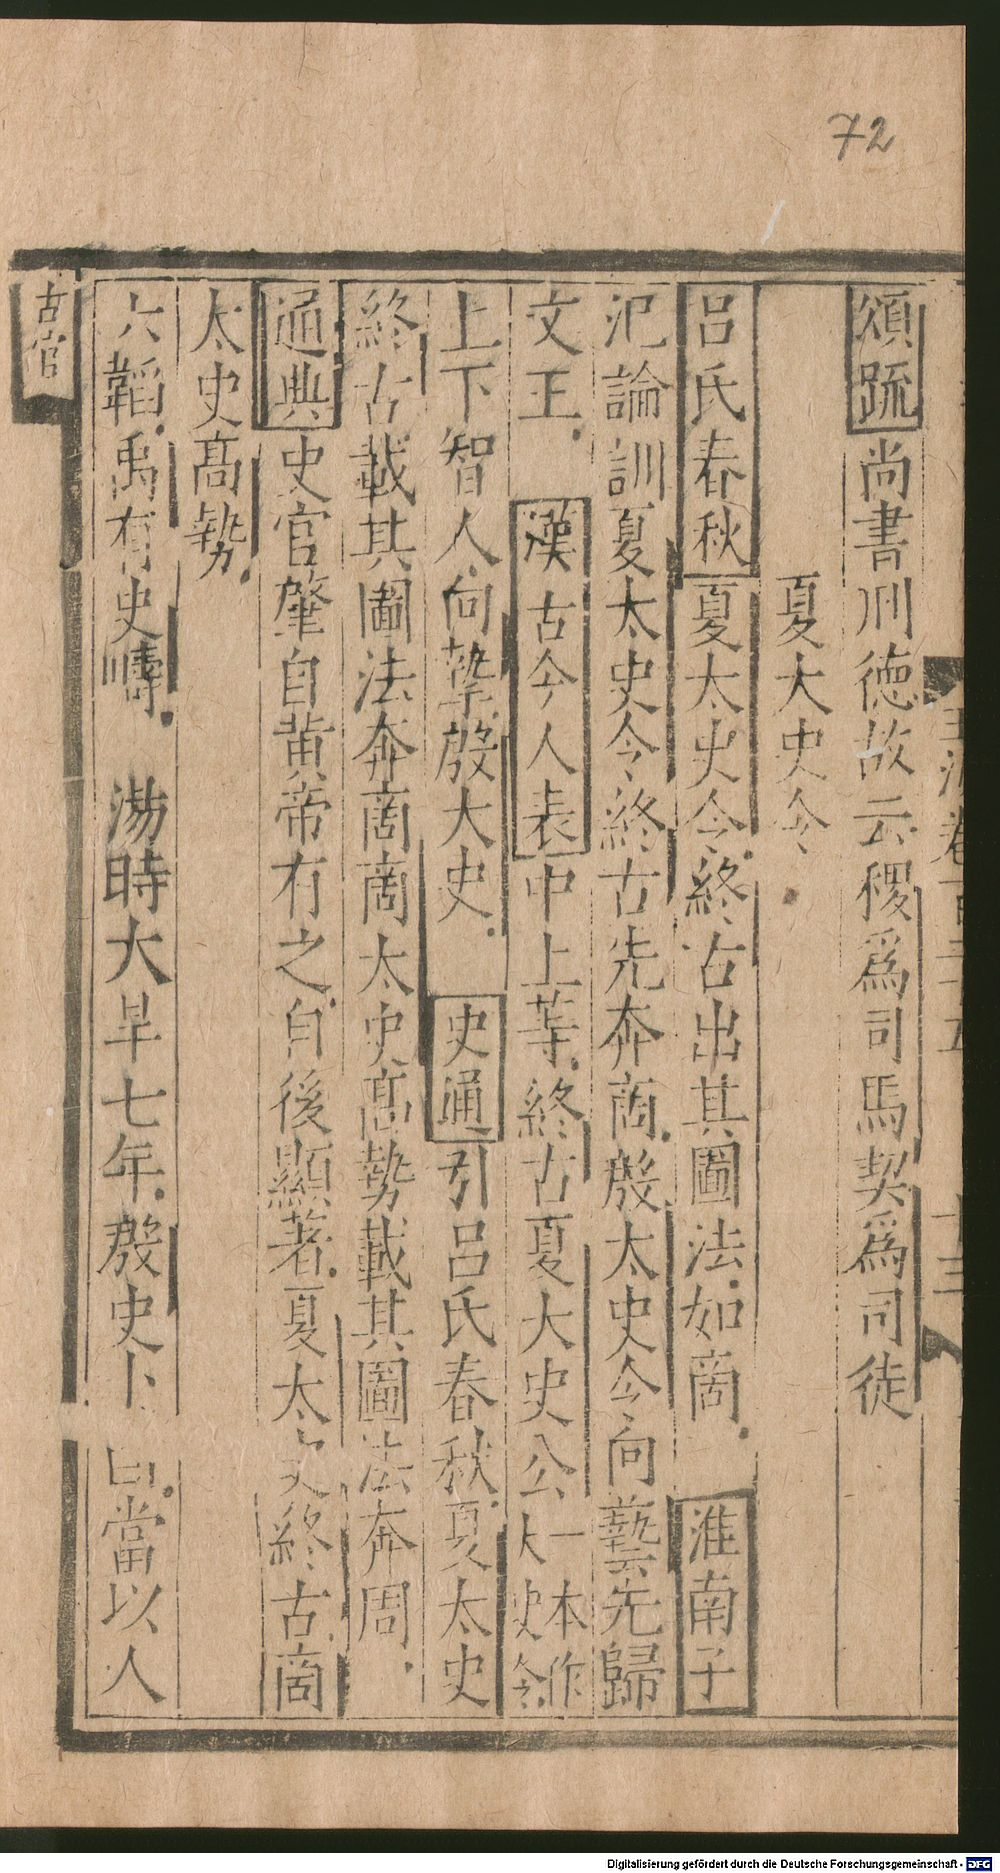 72
頌䟽尚書刑德故云稷爲司馬契爲司徒
夏大史令
吕氏春秋夏太史令終古出其圖法如啇 淮南子
氾論訓夏太史令終古先奔啇殷太史令向藝先歸
文王 漢古今人表中上等終古夏大史公一本作大史令
上下智人向摯殷大史 史通引吕氏春秋夏太史
終古載其圖法奔啇啇太史高勢載其圖法奔周
通典史官肇自黄帝有之自後顯著夏太史終古啇
太史高勢
六韜禹有史疇 湯時大旱七年殷史卜曰當以人
古官
玉海卷百二十五
十三
Digitalisierung gefördert durch die Deutsche Forschungsgemeinschaft - DFG